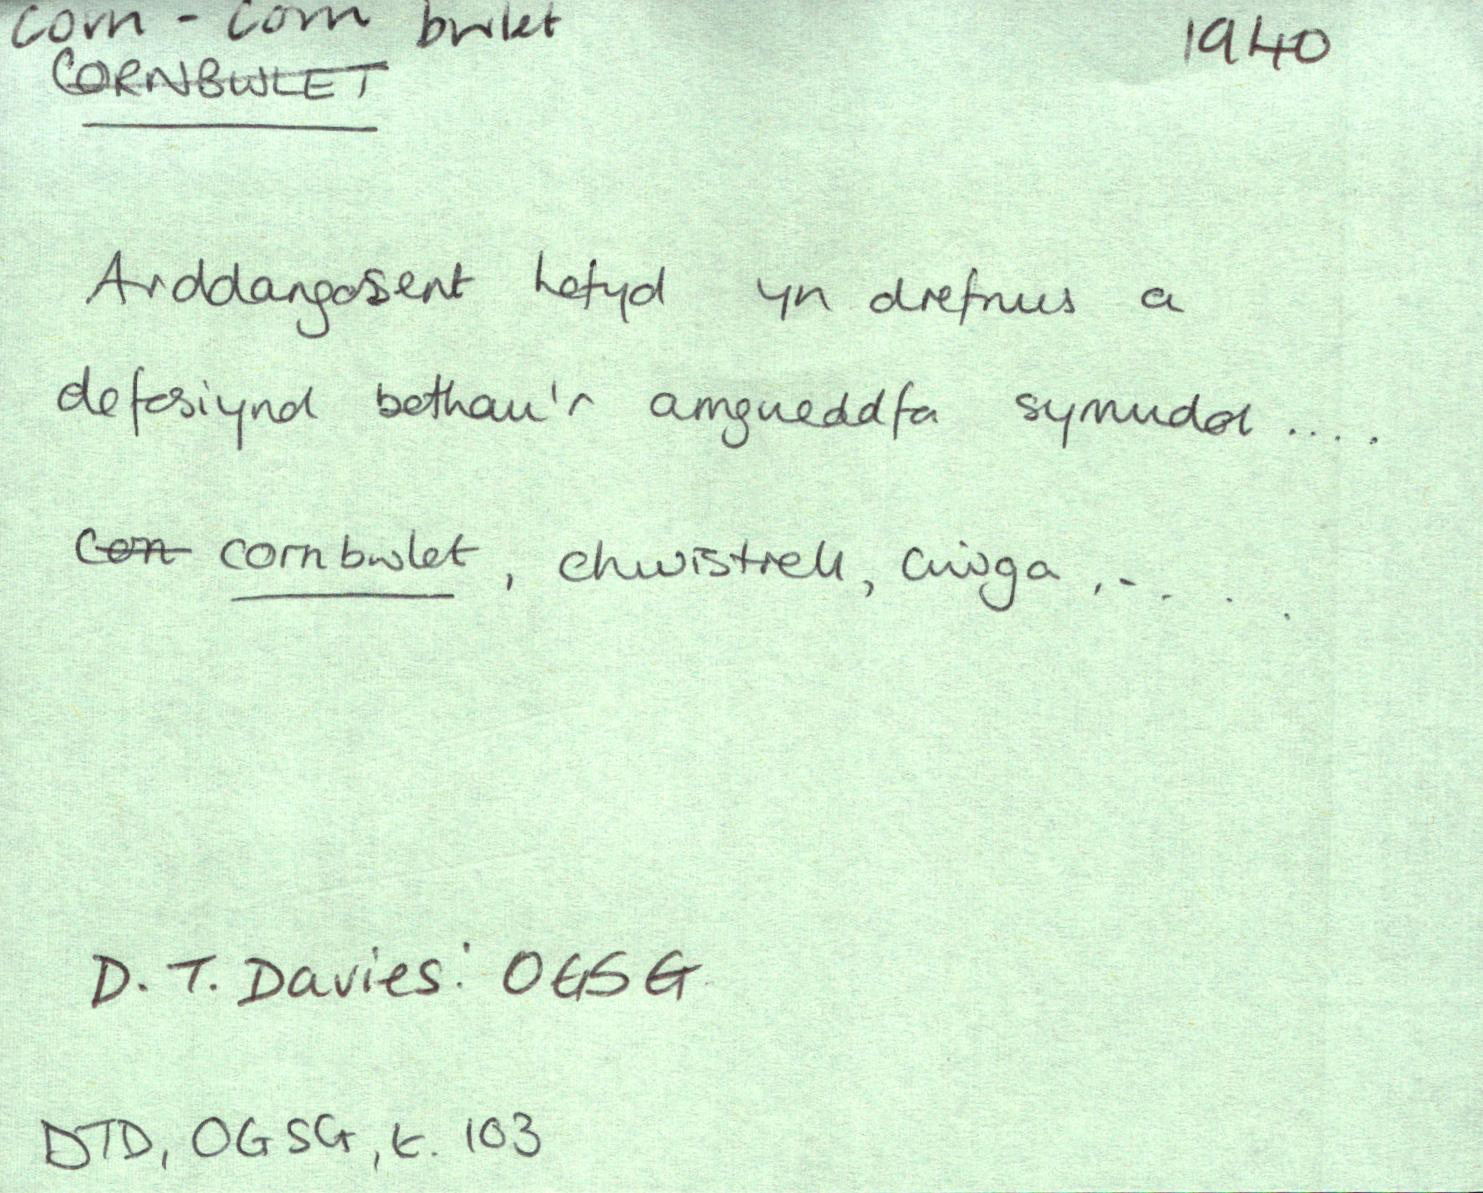 corn - corn bwlet 1940
CORNBWLET
Arddangosent hefyd yn drefnus a
defosiynol bethau'r amgueddfa symudol ....
Con cornbwlet, chwistrell, cwsga, - . . .
D. T. Davies: OGSG
DTD, OGSG, t. 103